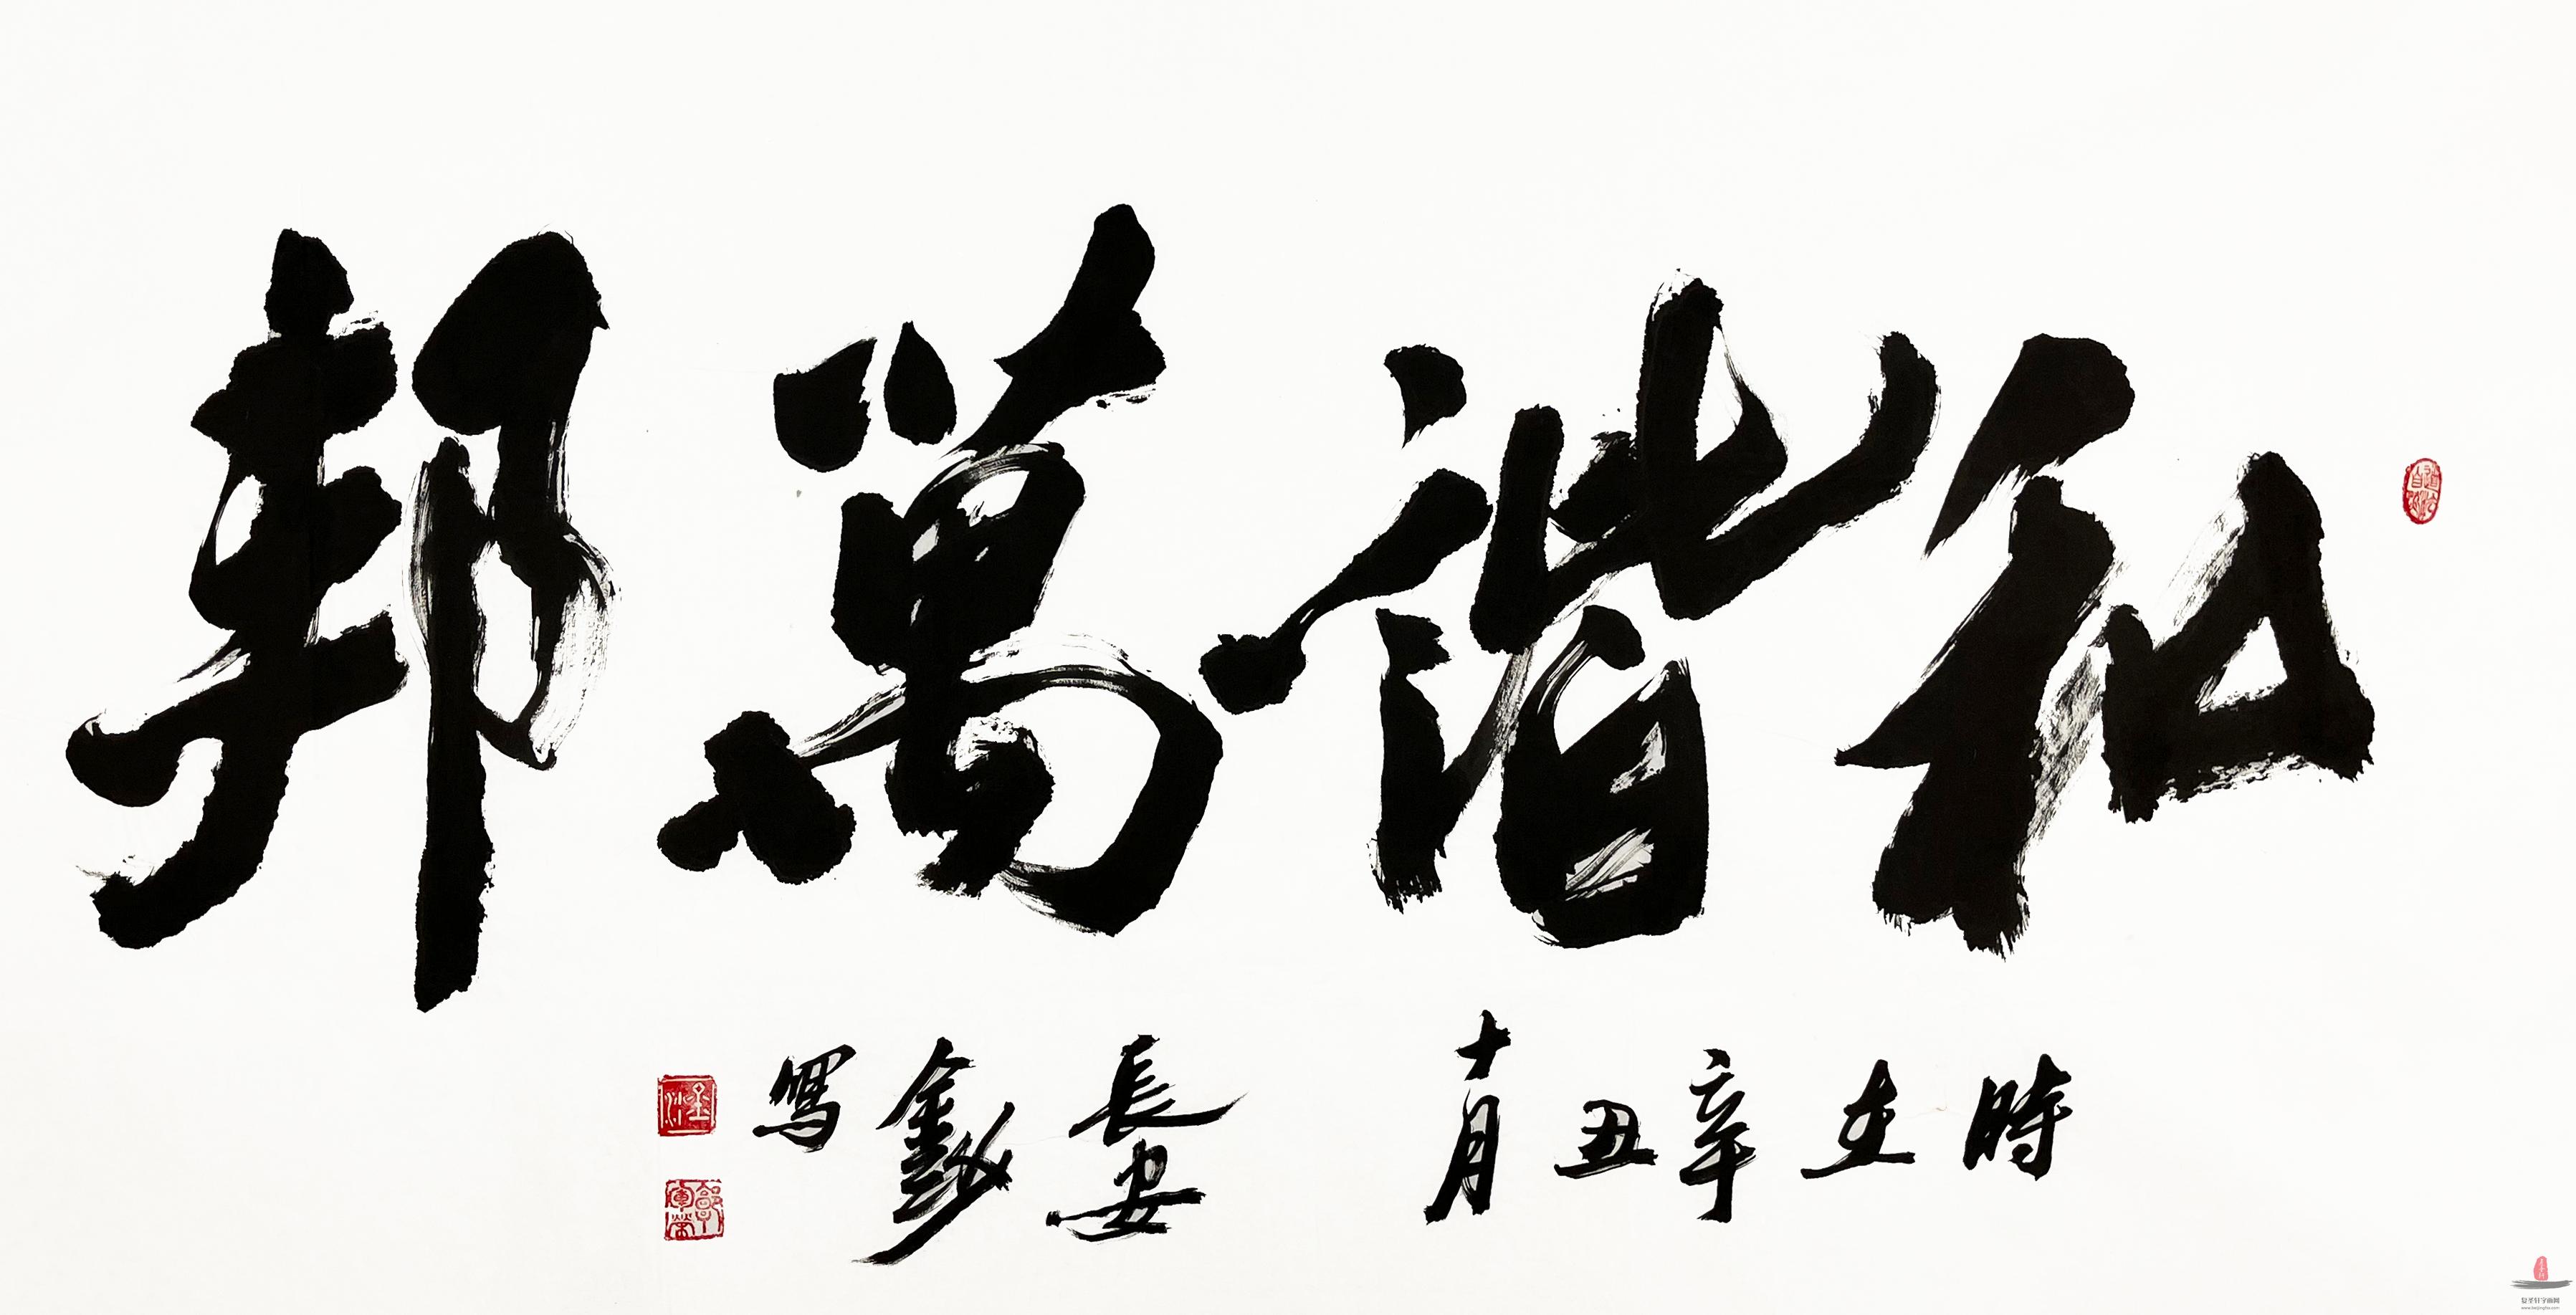 和諧萬邦
時在辛丑十月
長安金沙寫